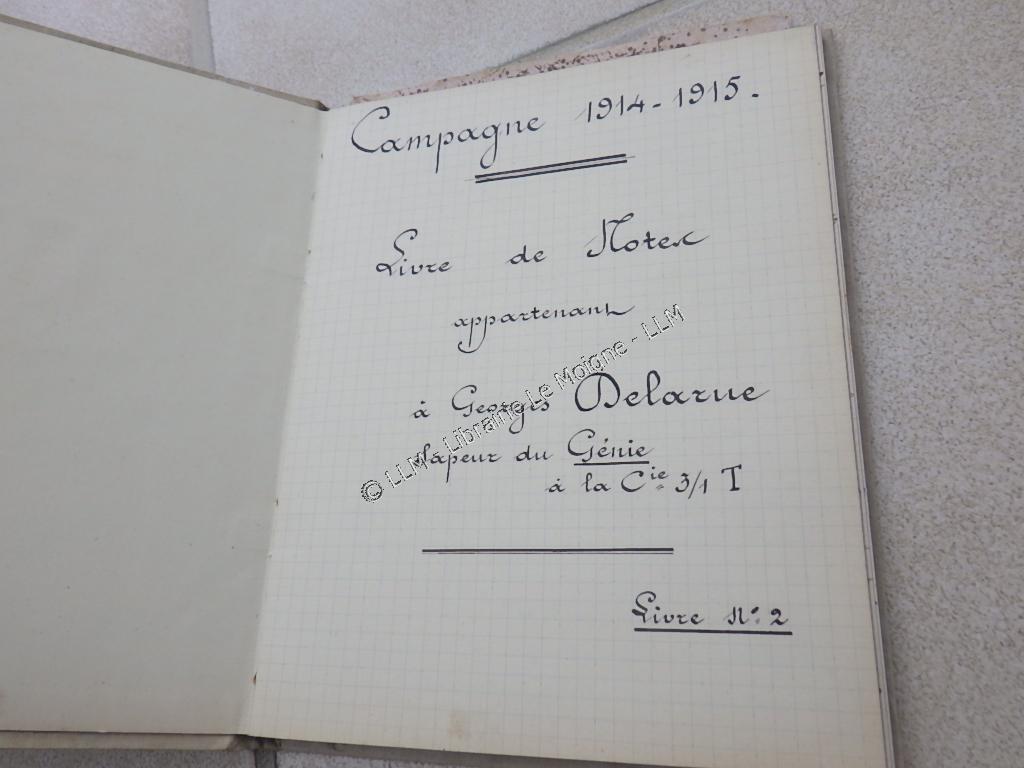 Campagne 1914-1915.
Livre de Notes
appartenant
à Georges Delarue
Sapeur du Génie
à la Cie 3/1 T
Livre No 2
© LLM - Librairie Le Moigne - LLM